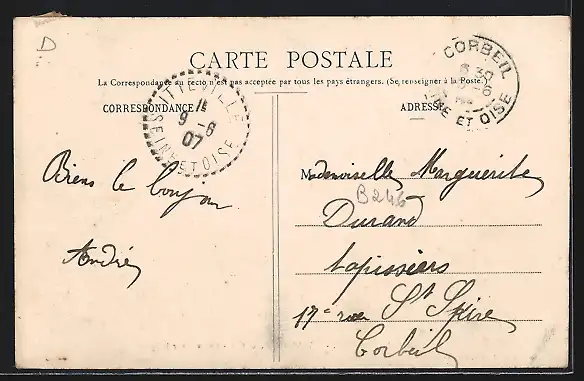 D
CARTE POSTALE
La Correspondance au recto n'est pas acceptée par tous les pays étrangers. (Se renseigner à la Poste.)
CORRESPONDANCE
ADRESSE
ITTEVILLE
11
9 - 6
07
SEINE ET OISE
CORBEIL
9-6
SEINE ET OISE
Biens le bonjour
André
Mademoiselle Marguerite
B246
Durand
tapissiers
17 rue St Spire
Corbeil